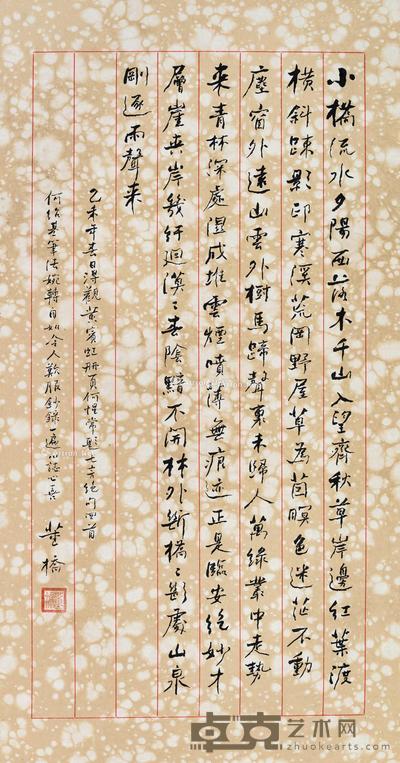 小橋流水夕陽西落木千山入望齊秋草岸邊紅葉渡
橫斜疎影印寒溪荒岡野屋草為茵暝色迷茫不動
塵窗外遠山雲外樹馬蹄聲裏未歸人萬綠叢中走勢
來青林深處湿成堆雲煙噴薄無痕迹正是臨安絕妙才
層崖夾岸幾紆迴漠〻春陰黯不開林外斷橋〻斷處山泉
剛逐雨聲來
乙未年春日得觀黃賓虹册頁何惺常題七言絕句四首
何紹基筆法婉轉自如令人歎服鈔錄一遍以誌心喜 董橋
卓克艺术网
www.zhuokearts.com